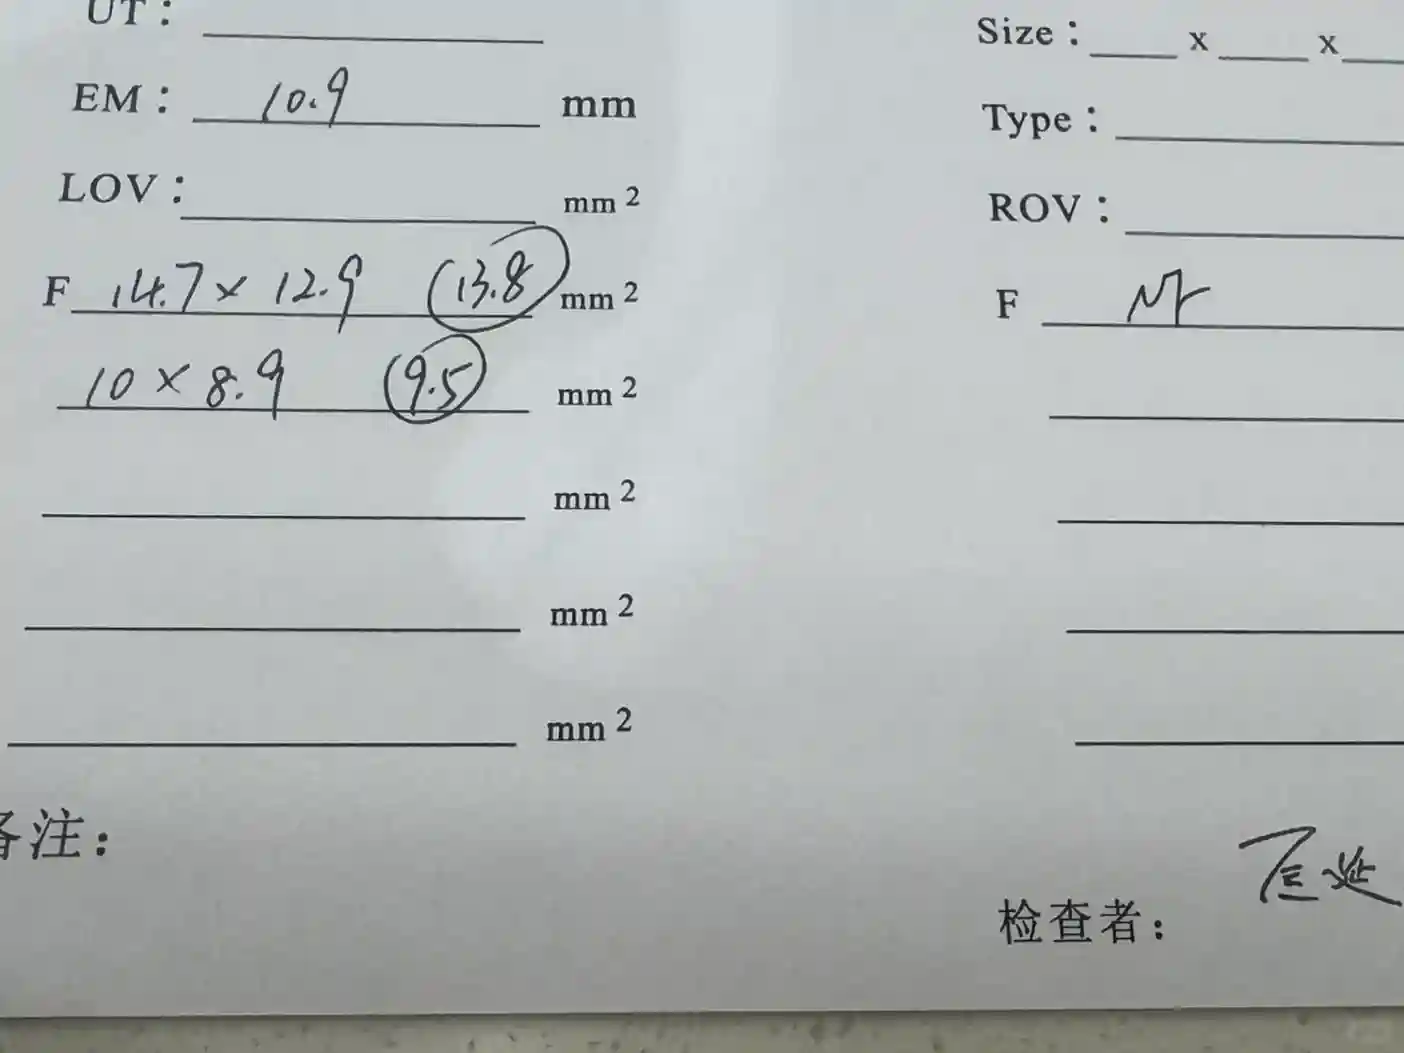 UT:
EM: 10.9 mm
LOV: mm²
F 14.7 x 12.9 (13.8) mm²
10 x 8.9 (9.5) mm²
mm²
mm²
mm²
备注:
Size: x x
Type:
ROV:
F
检查者: